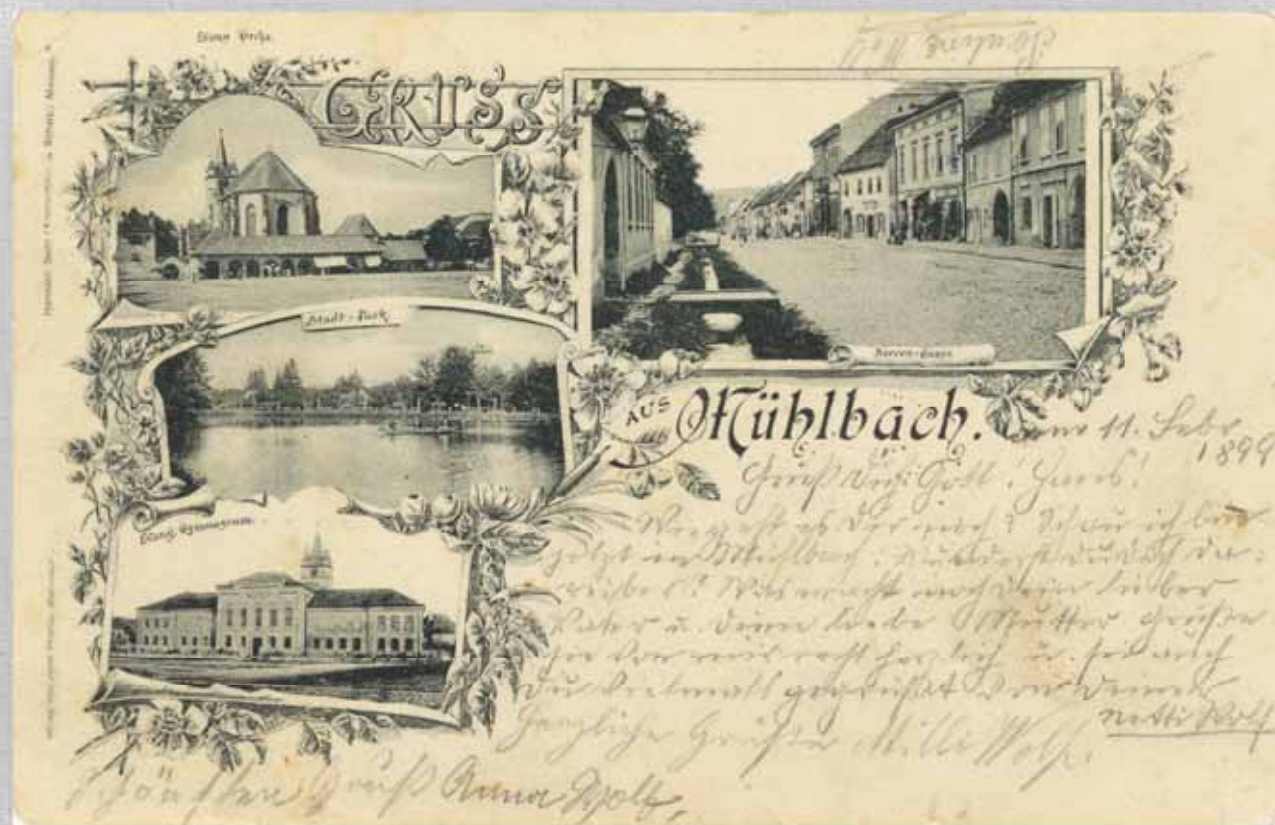 GRUSS
Stadt-Park
Herren-Gasse
AUS Mühlbach.
Evang. Gymnasium
11. Febr.
1899
Grüß dich Gott! Hans!
Wie geht es dir noch? Schau ich bin
jetzt in Mühlbach.
Was macht noch dein lieber
Vater u. deine liebe Mutter grüße
sie von mir recht herzlich u. sei auch
du vielmals gegrüßt von deiner
Netti Wolf
Herzliche Grüße Milli Wolf.
Schönsten Gruß Anna Wolf.